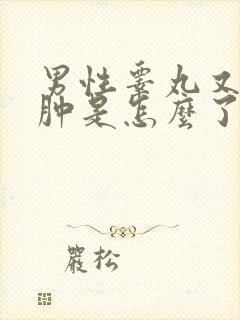 男性睾丸又
肿是怎麼了
嚴松